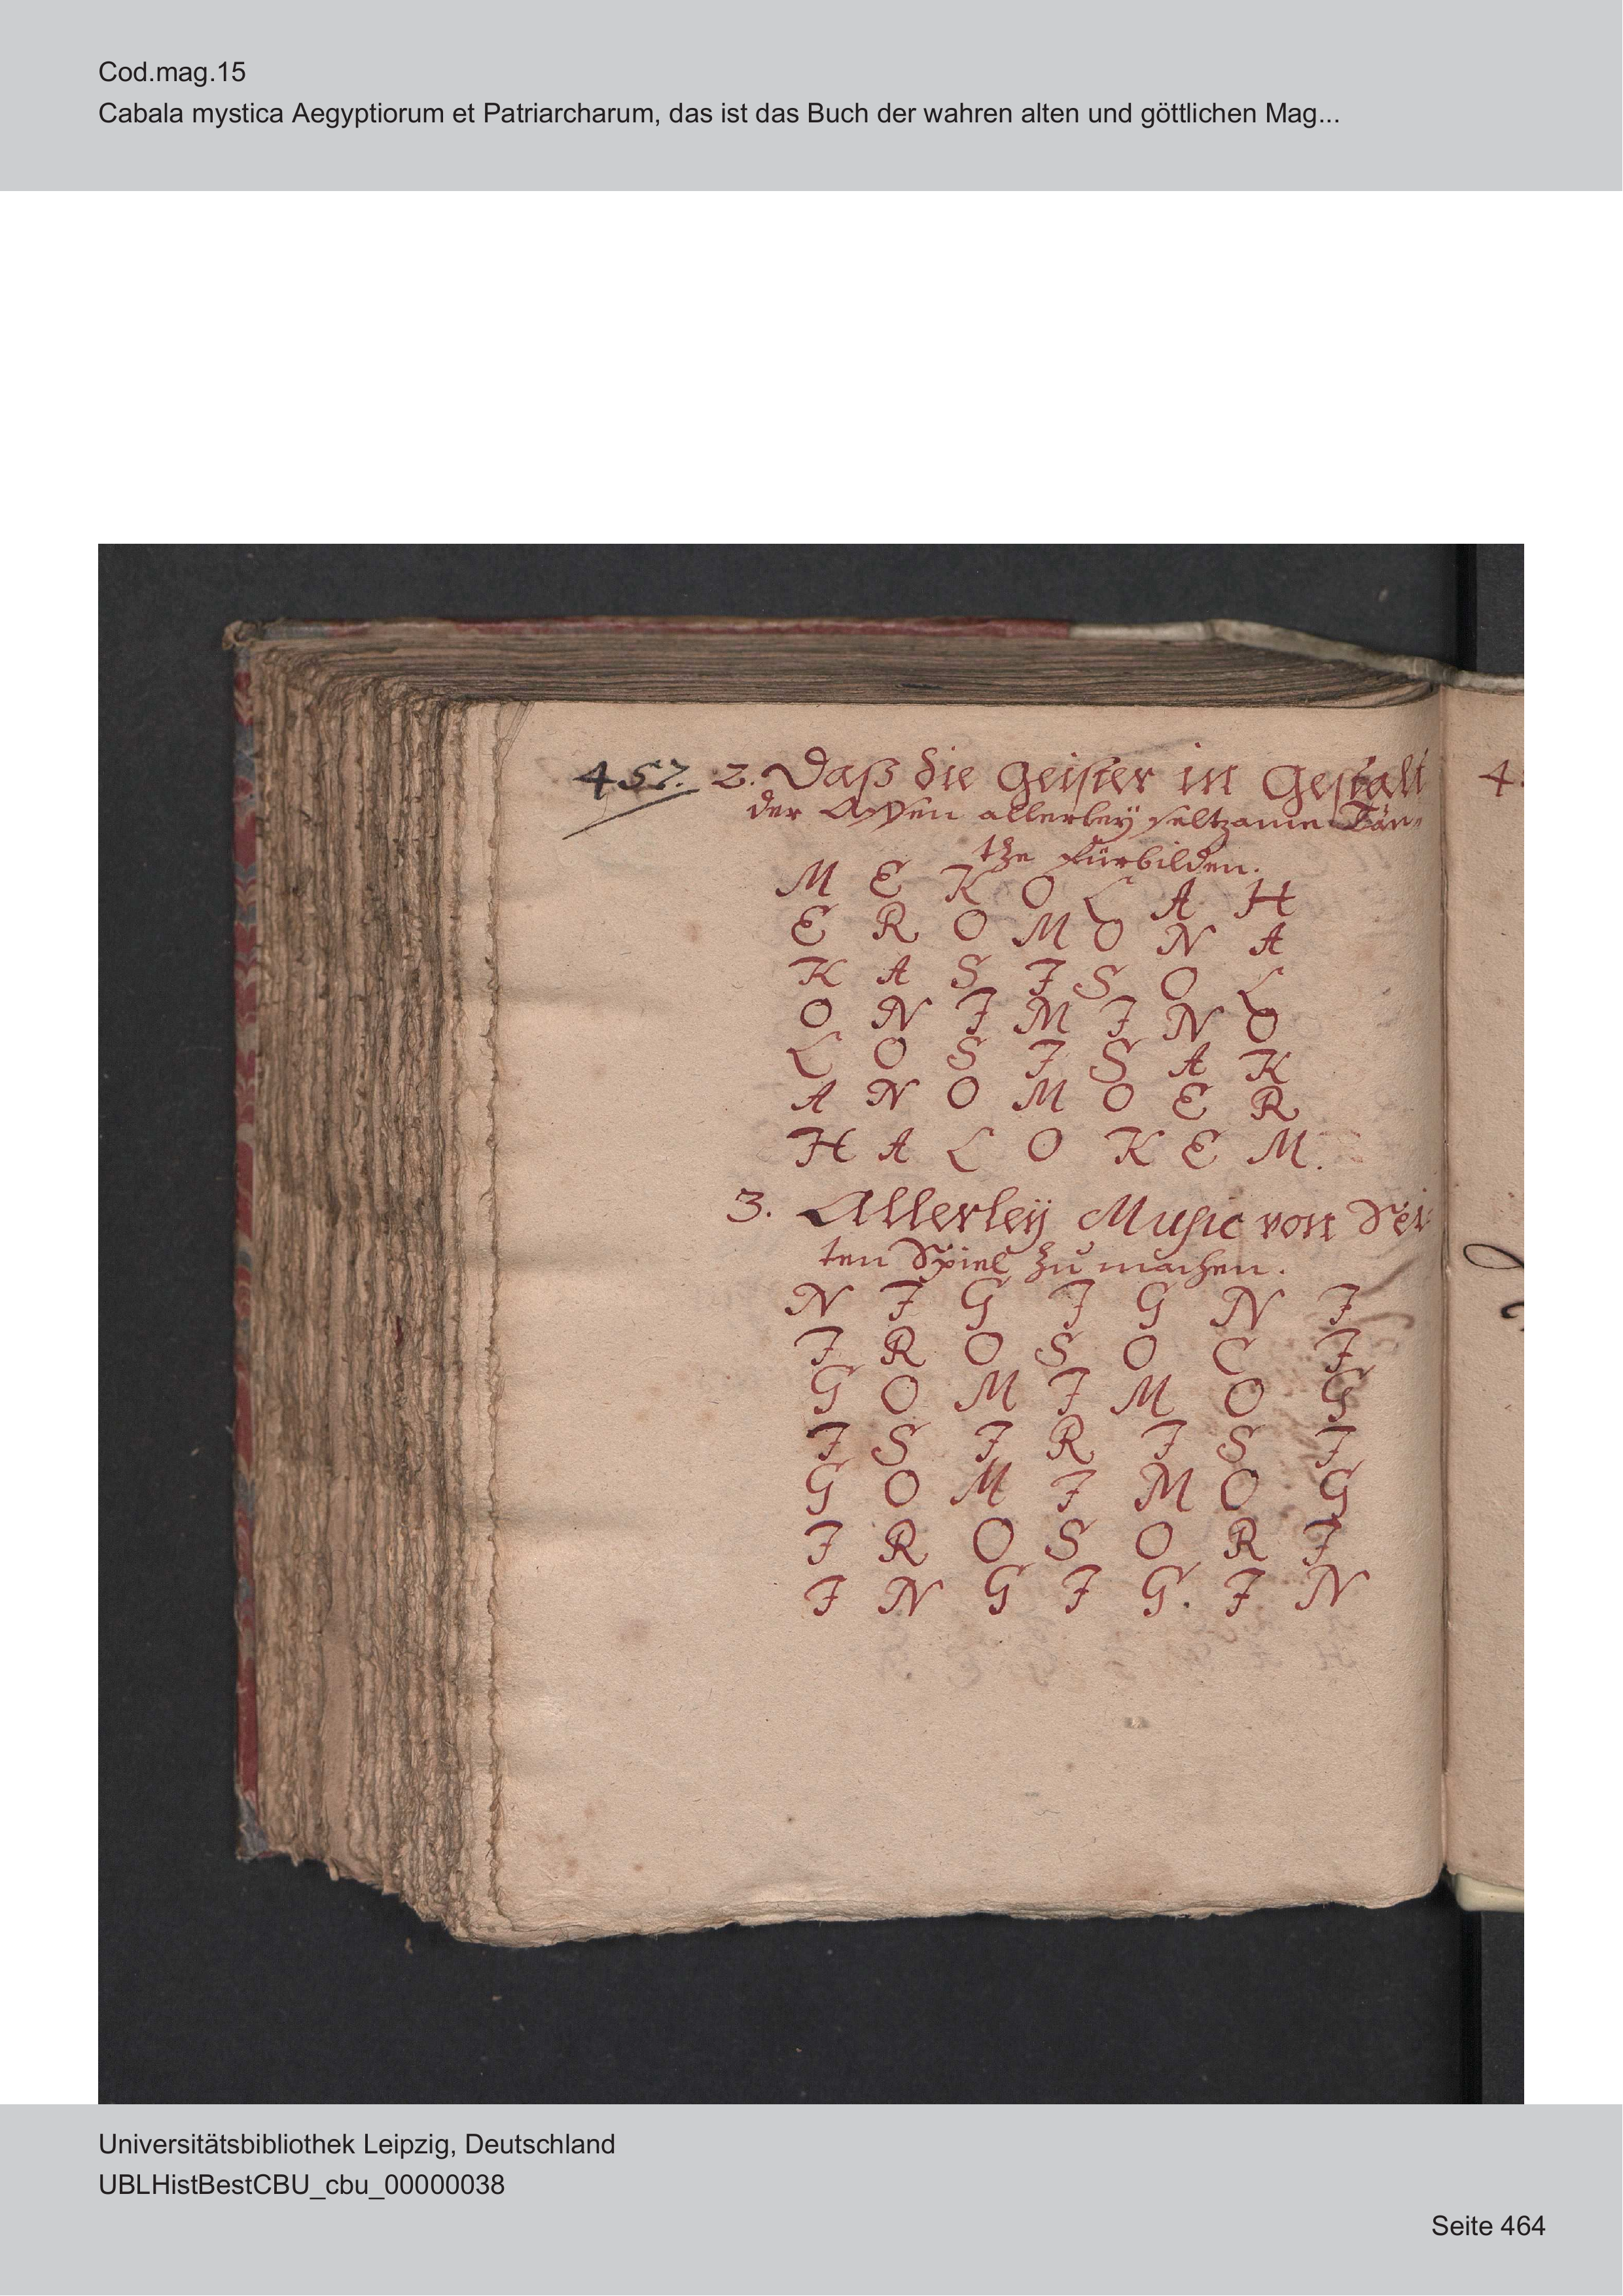 Cod.mag.15
Cabala mystica Aegyptiorum et Patriarcharum, das ist das Buch der wahren alten und göttlichen Mag...
457. 2. Daß die Geister in Gestalt
der Affen allerley seltzame Tän-
tze fürbilden.
M E K O L A H
E R O M O N A
K A S I S O L
O N I M I N O
L O S I S A K
A N O M O E R
H A L O K E M.
3. Allerleÿ Music von Sei-
ten Spiel zu machen.
N I G I G N I
I R O S O C I
G O M I M O G
I S I R I S I
G O M I M O G
I R O S O R I
I N G I G. I N
4.
Universitätsbibliothek Leipzig, Deutschland
UBLHistBestCBU_cbu_00000038
Seite 464